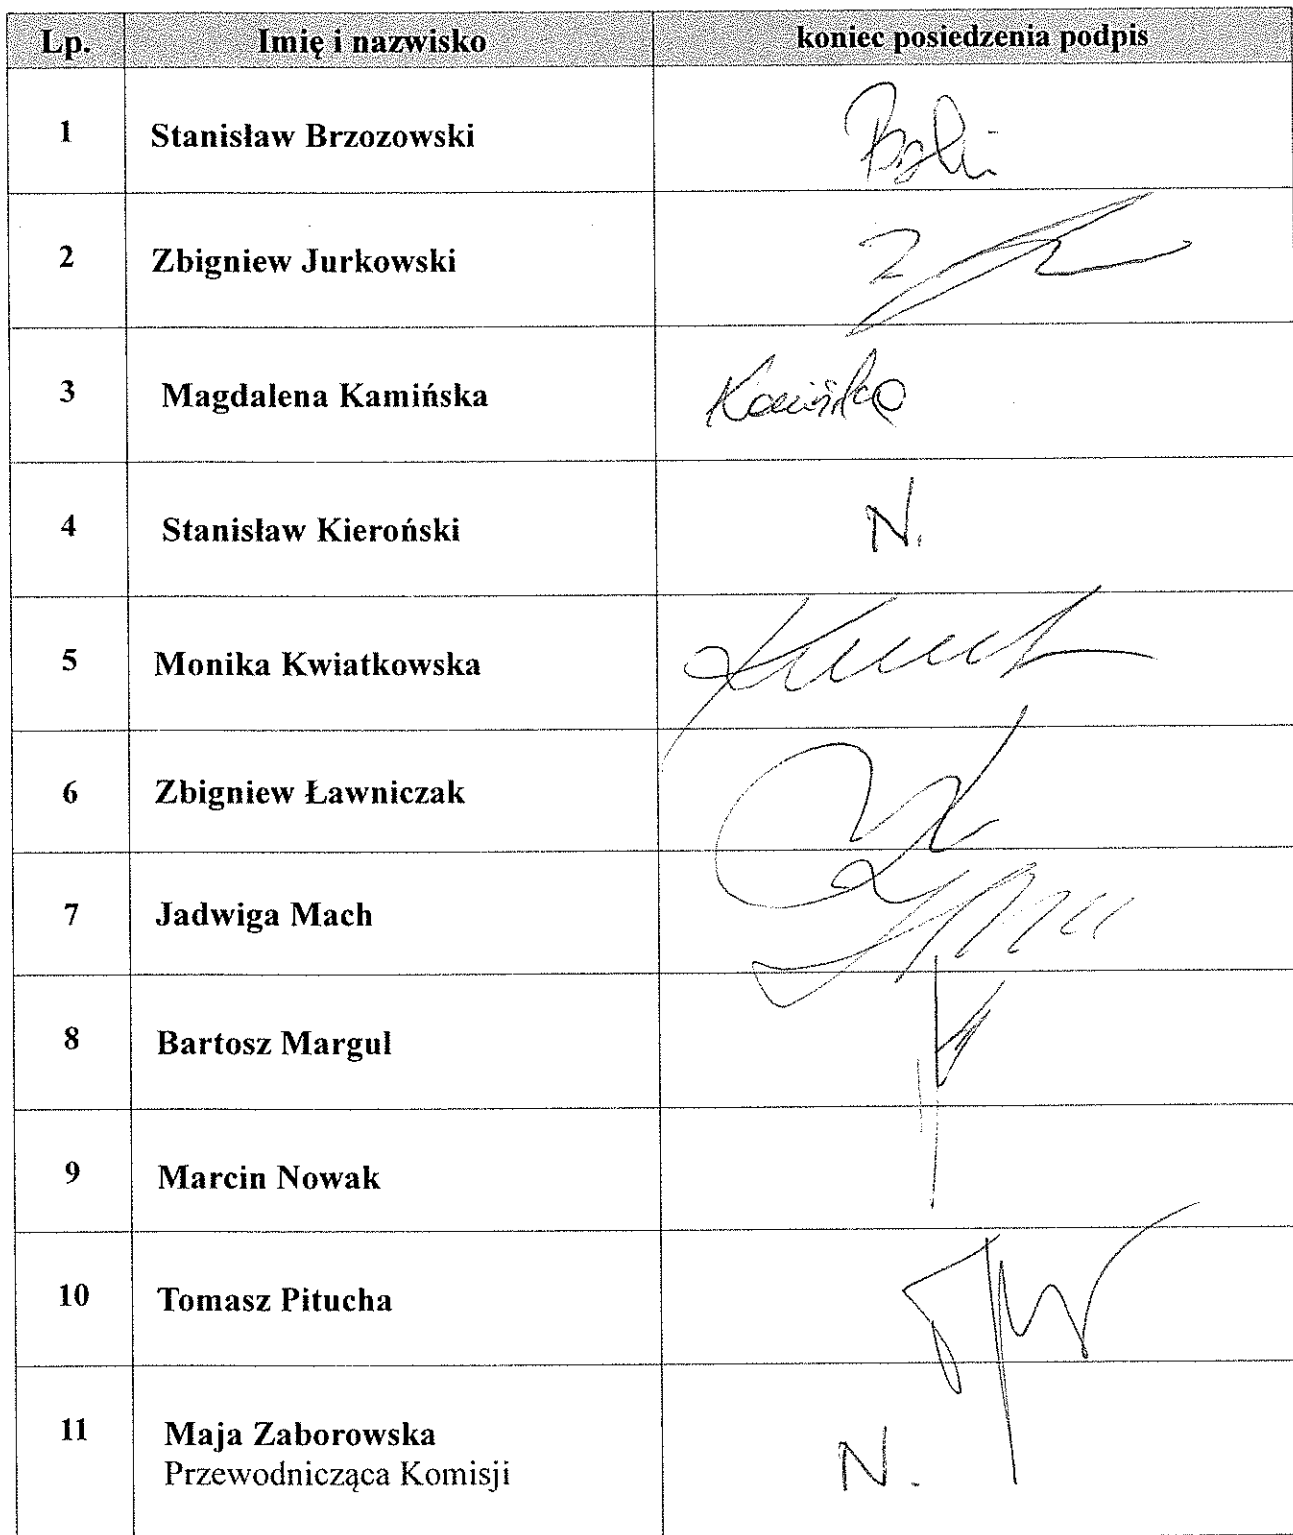 Lp. Imię i nazwisko koniec posiedzenia podpis
1 Stanisław Brzozowski
2 Zbigniew Jurkowski
3 Magdalena Kamińska Kamińska
4 Stanisław Kieroński N.
5 Monika Kwiatkowska
6 Zbigniew Ławniczak
7 Jadwiga Mach
8 Bartosz Margul
9 Marcin Nowak
10 Tomasz Pitucha
11 Maja Zaborowska N.
Przewodnicząca Komisji